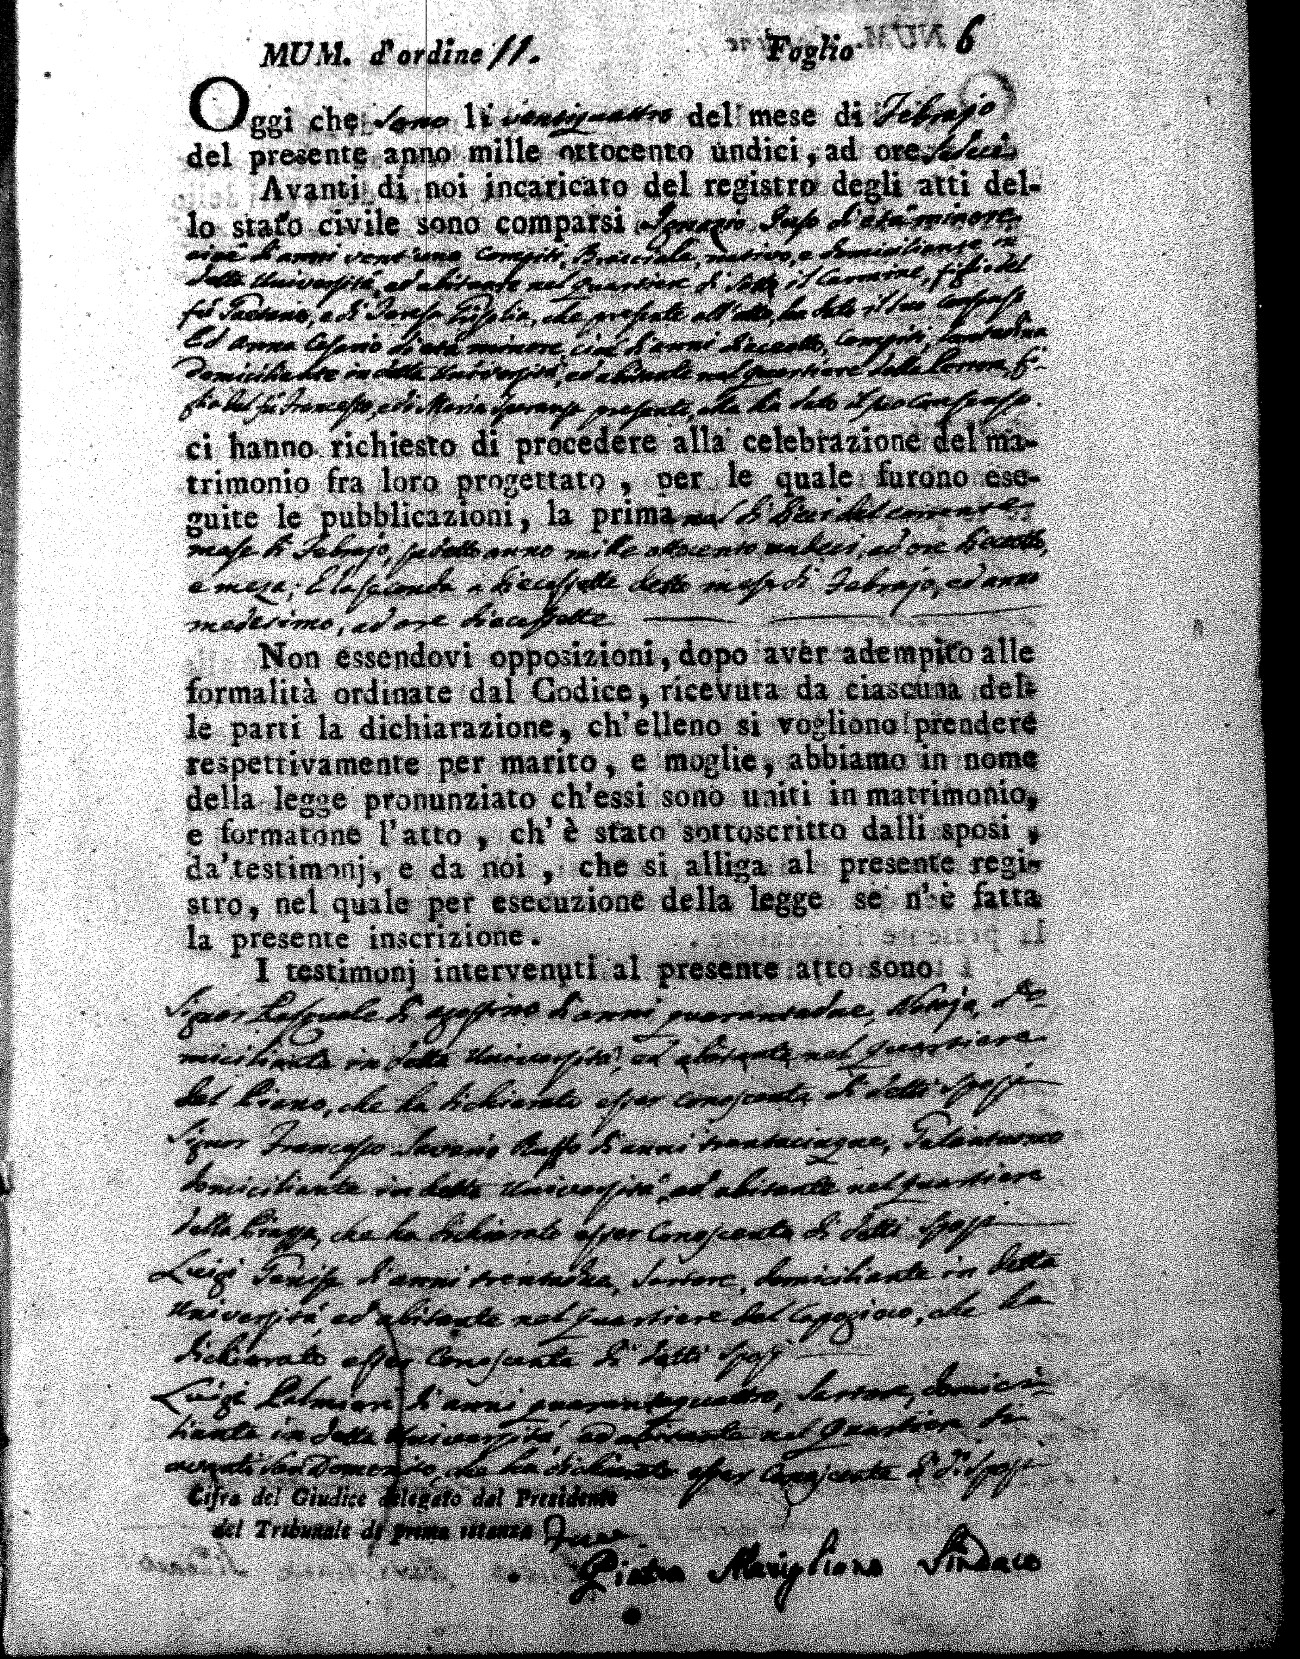 MUM. d'ordine 11. Foglio 6
Oggi che sono li ventiquattro del mese di Febrajo
del presente anno mille ottocento undici, ad ore sedeci
Avanti di noi incaricato del registro degli atti del-
lo stato civile sono comparsi Ignazio d'età minore,
cioè d'anni vent'uno compiti, nativo, e domiciliante in
detta Università, ed abitante nel quartiere di sotto il Carmine, figlio del
fù Gaetano, e di Teresa che presente all'atto, ha dato il suo consenso
Ed Anna d'età minore, cioè d'anni dieceotto compiti,
domiciliante in detta Università, ed abitante nel quartiere della fi-
glia del fù Francesco, e di Maria Speranza presente, che ha dato il suo consenso.
ci hanno richiesto di procedere alla celebrazione del ma-
trimonio fra loro progettato, per le quale furono ese-
guite le pubblicazioni, la prima nel dì dieci del corrente
mese di Febrajo, sudetto anno mille ottocento undeci, ad ore dieceotto,
e meza; E la seconda a diecessette detto mese di Febrajo, ed anno
medesimo, ad ore diecessette
Non essendovi opposizioni, dopo aver adempito alle
formalità ordinate dal Codice, ricevuta da ciascuna del-
le parti la dichiarazione, ch'elleno si vogliono prendere
respettivamente per marito, e moglie, abbiamo in nome
della legge pronunziato ch'essi sono uniti in matrimonio,
e formatone l'atto, ch'è stato sottoscritto dalli sposi,
da'testimonj, e da noi, che si alliga al presente regi-
stro, nel quale per esecuzione della legge se n'è fatta
la presente inscrizione.
I testimonj intervenuti al presente atto sono
Signor Pasquale di d'anni quarantadue, do-
miciliante in detta Università, ed abitante nel quartiere
del Piano, che ha dichiarato esser conoscente di detti sposi
Signor Francesco Saverio Ruffo d'anni trentacinque, Galantuomo
domiciliante in detta Università, ed abitante nel quartiere
della Piazza, che ha dichiarato esser conoscente di detti sposi
Luigi d'anni trentadue, Sartore, domiciliante in detta
Università, ed abitante nel quartiere del che ha
dichiarato esser conoscente di detti sposi
Luigi Palmieri d'anni quarantaquattro, domici-
liante in detta Università, ed abitante nel quartiere di
avanti San Domenico, che ha dichiarato esser conoscente di d.i sposi
Cifra del Giudice delegato dal Presidente
del Tribunale di prima istanza
Pietro Marigliano Sindaco